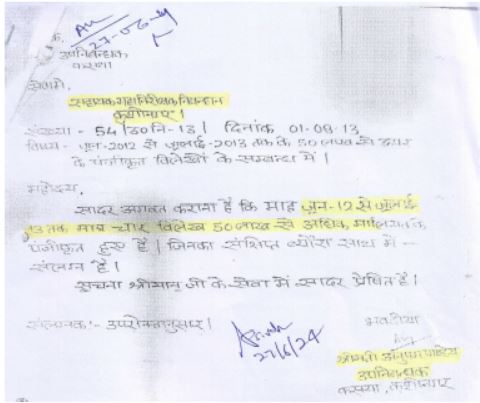 27-06-24
उपनिबन्धक
कसया
सेवामें,
सहायक महानिरीक्षक निबन्धन
कुशीनगर।
संख्या - 54/उ0नि-13। दिनांक 01-08-13
विषय - जून-2012 से जुलाई-2013 तक के 50 लाख से ऊपर
के पंजीकृत विलेखों के सम्बन्ध में।
महोदय,
सादर अवगत कराना है कि माह जून-12 से जुलाई
13 तक मात्र चार विलेख 50 लाख से अधिक मालियत के
पंजीकृत हुए हैं। जिनका संक्षिप्त ब्यौरा साथ में -
संलग्न है।
सूचना श्रीमान् जी के सेवा में सादर प्रेषित है।
संलग्नक:- उपरोक्तानुसार।
भवदीया
27/6/24
श्रीमती अनुपमा पाण्डेय
उपनिबन्धक
कसया, कुशीनगर